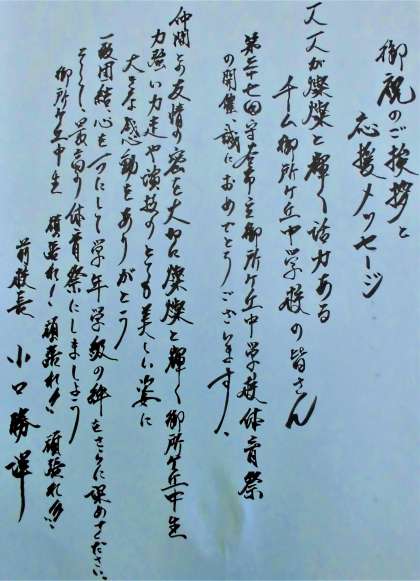 御祝のご挨拶と
応援メッセージ
一人一人が燦燦と輝く活力ある
チーム御所ケ丘中学校の皆さん
第三十七回守谷市立御所ケ丘中学校体育祭
の開催、誠におめでとうございます。
仲間との友情の密を大切に燦燦と輝く御所ケ丘中生
力強い力走や演技のとても美しい姿に
大きな感動をありがとう
一致団結、心を一つにして学年学級の絆をさらに深めください。
そして、最高の体育祭にしましょう
御所ケ丘中生 頑張れ!頑張れ!!頑張れ!!!
前校長 小口勝洋